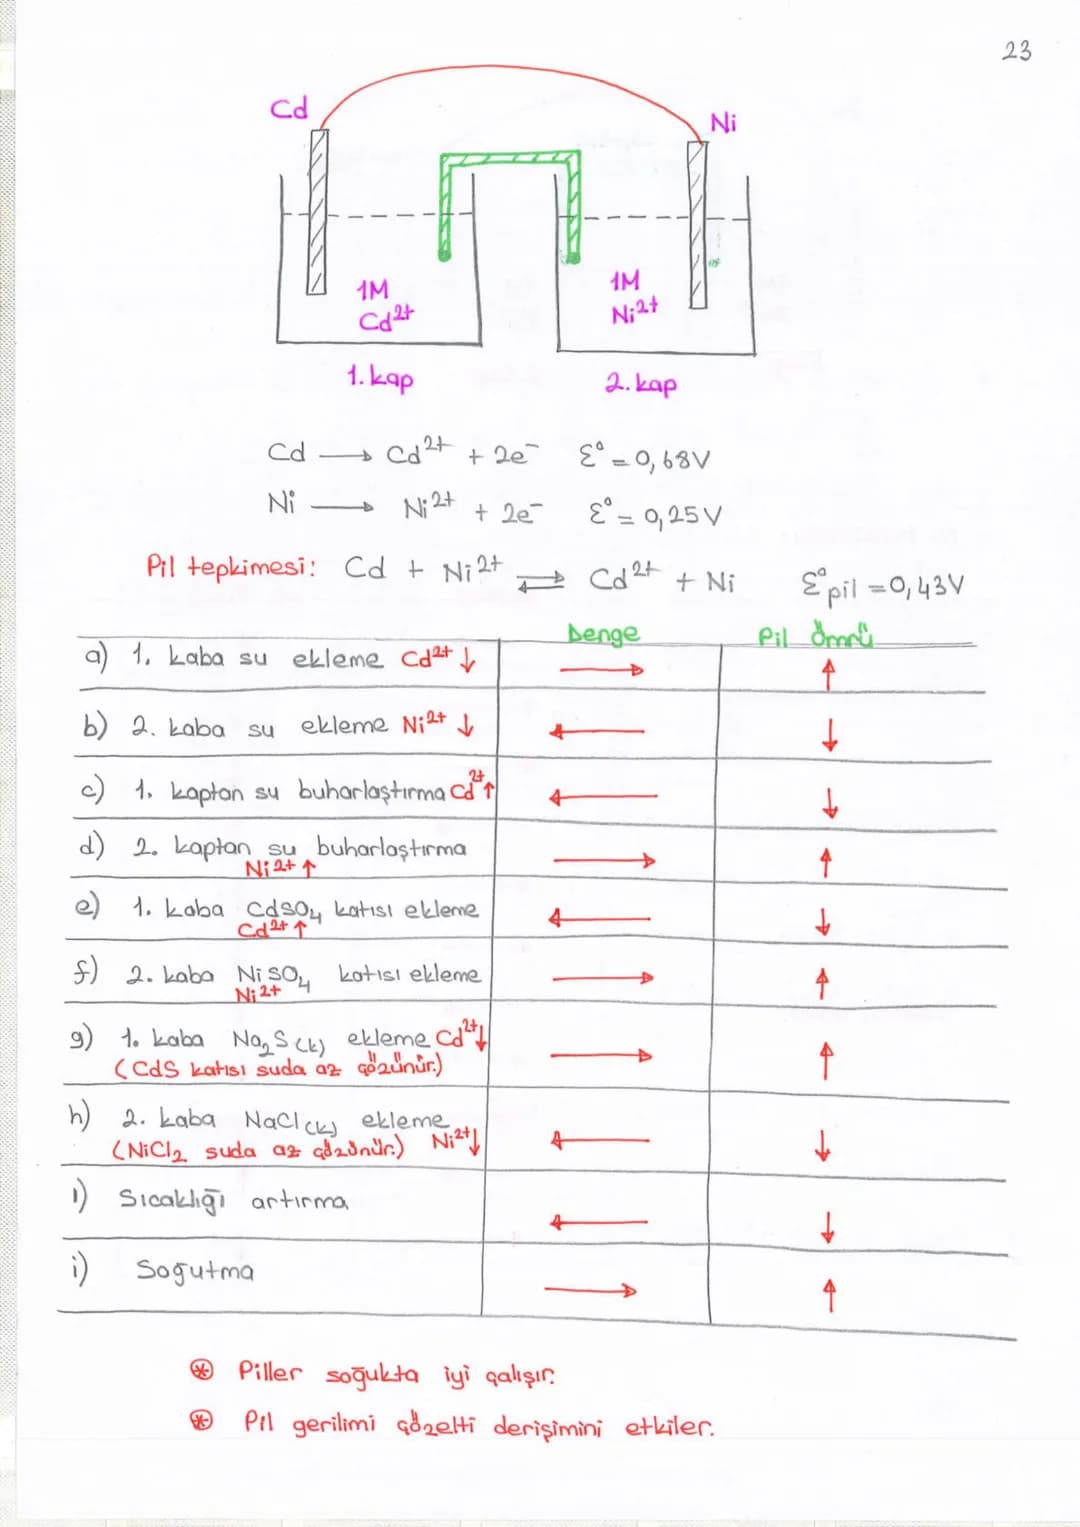 23
Cd
Ni
1M
Cd²⁺
1M
Ni²⁺
1. kap
2. kap
Cd ⟶ Cd²⁺ + 2e⁻ Ɛ° = 0,68V
Ni ⟶ Ni²⁺ + 2e⁻ Ɛ° = 0,25V
Pil tepkimesi: Cd + Ni²⁺ ⇌ Cd²⁺ + Ni Ɛ°pil = 0,43V
Denge Pil Ömrü
a) 1. kaba su ekleme Cd²⁺ ↓ → ↑
b) 2. kaba su ekleme Ni²⁺ ↓ ← ↓
c) 1. kaptan su buharlaştırma Cd²⁺ ↑ ← ↓
d) 2. kaptan su buharlaştırma → ↑
Ni²⁺ ↑
e) 1. kaba CdSO₄ katısı ekleme ← ↓
Cd²⁺ ↑
f) 2. kaba NiSO₄ katısı ekleme → ↑
Ni²⁺
g) 1. kaba Na₂S(k) ekleme Cd²⁺ ↓ → ↑
(CdS katısı suda az çözünür.)
h) 2. kaba NaCl(k) ekleme ← ↓
(NiCl₂ suda az çözünür.) Ni²⁺ ↓
ı) Sıcaklığı artırma ← ↓
i) Soğutma → ↑
⊛ Piller soğukta iyi çalışır.
⊛ Pil gerilimi çözelti derişimini etkiler.